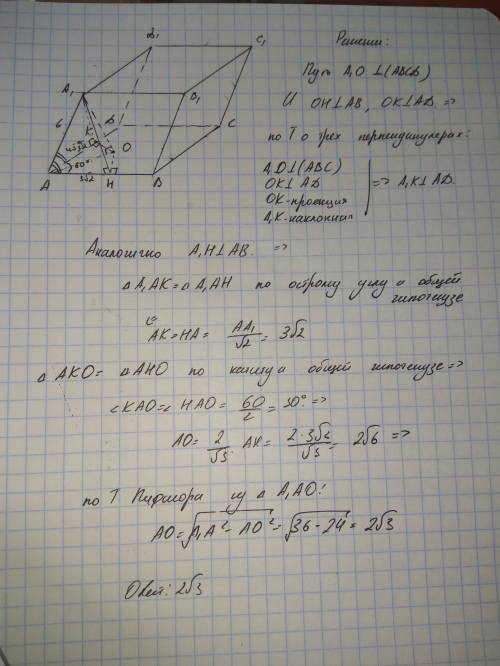 Решение:
Пусть A₁O ⊥ (ABCD)
И OH⊥AB, OK⊥AD =>
по Т о трех перпендикулярах:
A₁O⊥(ABC)
OK⊥AD
OK-проекция
A₁K-наклонная
=> A₁K⊥AD.
Аналогично A₁H⊥AB =>
△A₁AK=△A₁AH по острому углу и общей
гипотенузе
AK=HA= AA₁/√2 = 3√2
△AKO= △AHO по катету и общей гипотенузе =>
∠KAO=∠HAO= 60/2 = 30° =>
AO= 2/√3 · AK = 2·3√2/√3 = 2√6 =>
по Т Пифагора из △ A₁AO:
AO=√A₁A² - AO² = √36-24 = 2√3
Ответ: 2√3
D₁
C₁
A₁
B₁
6
D
C
O
K
60°
A
3√2
H
B